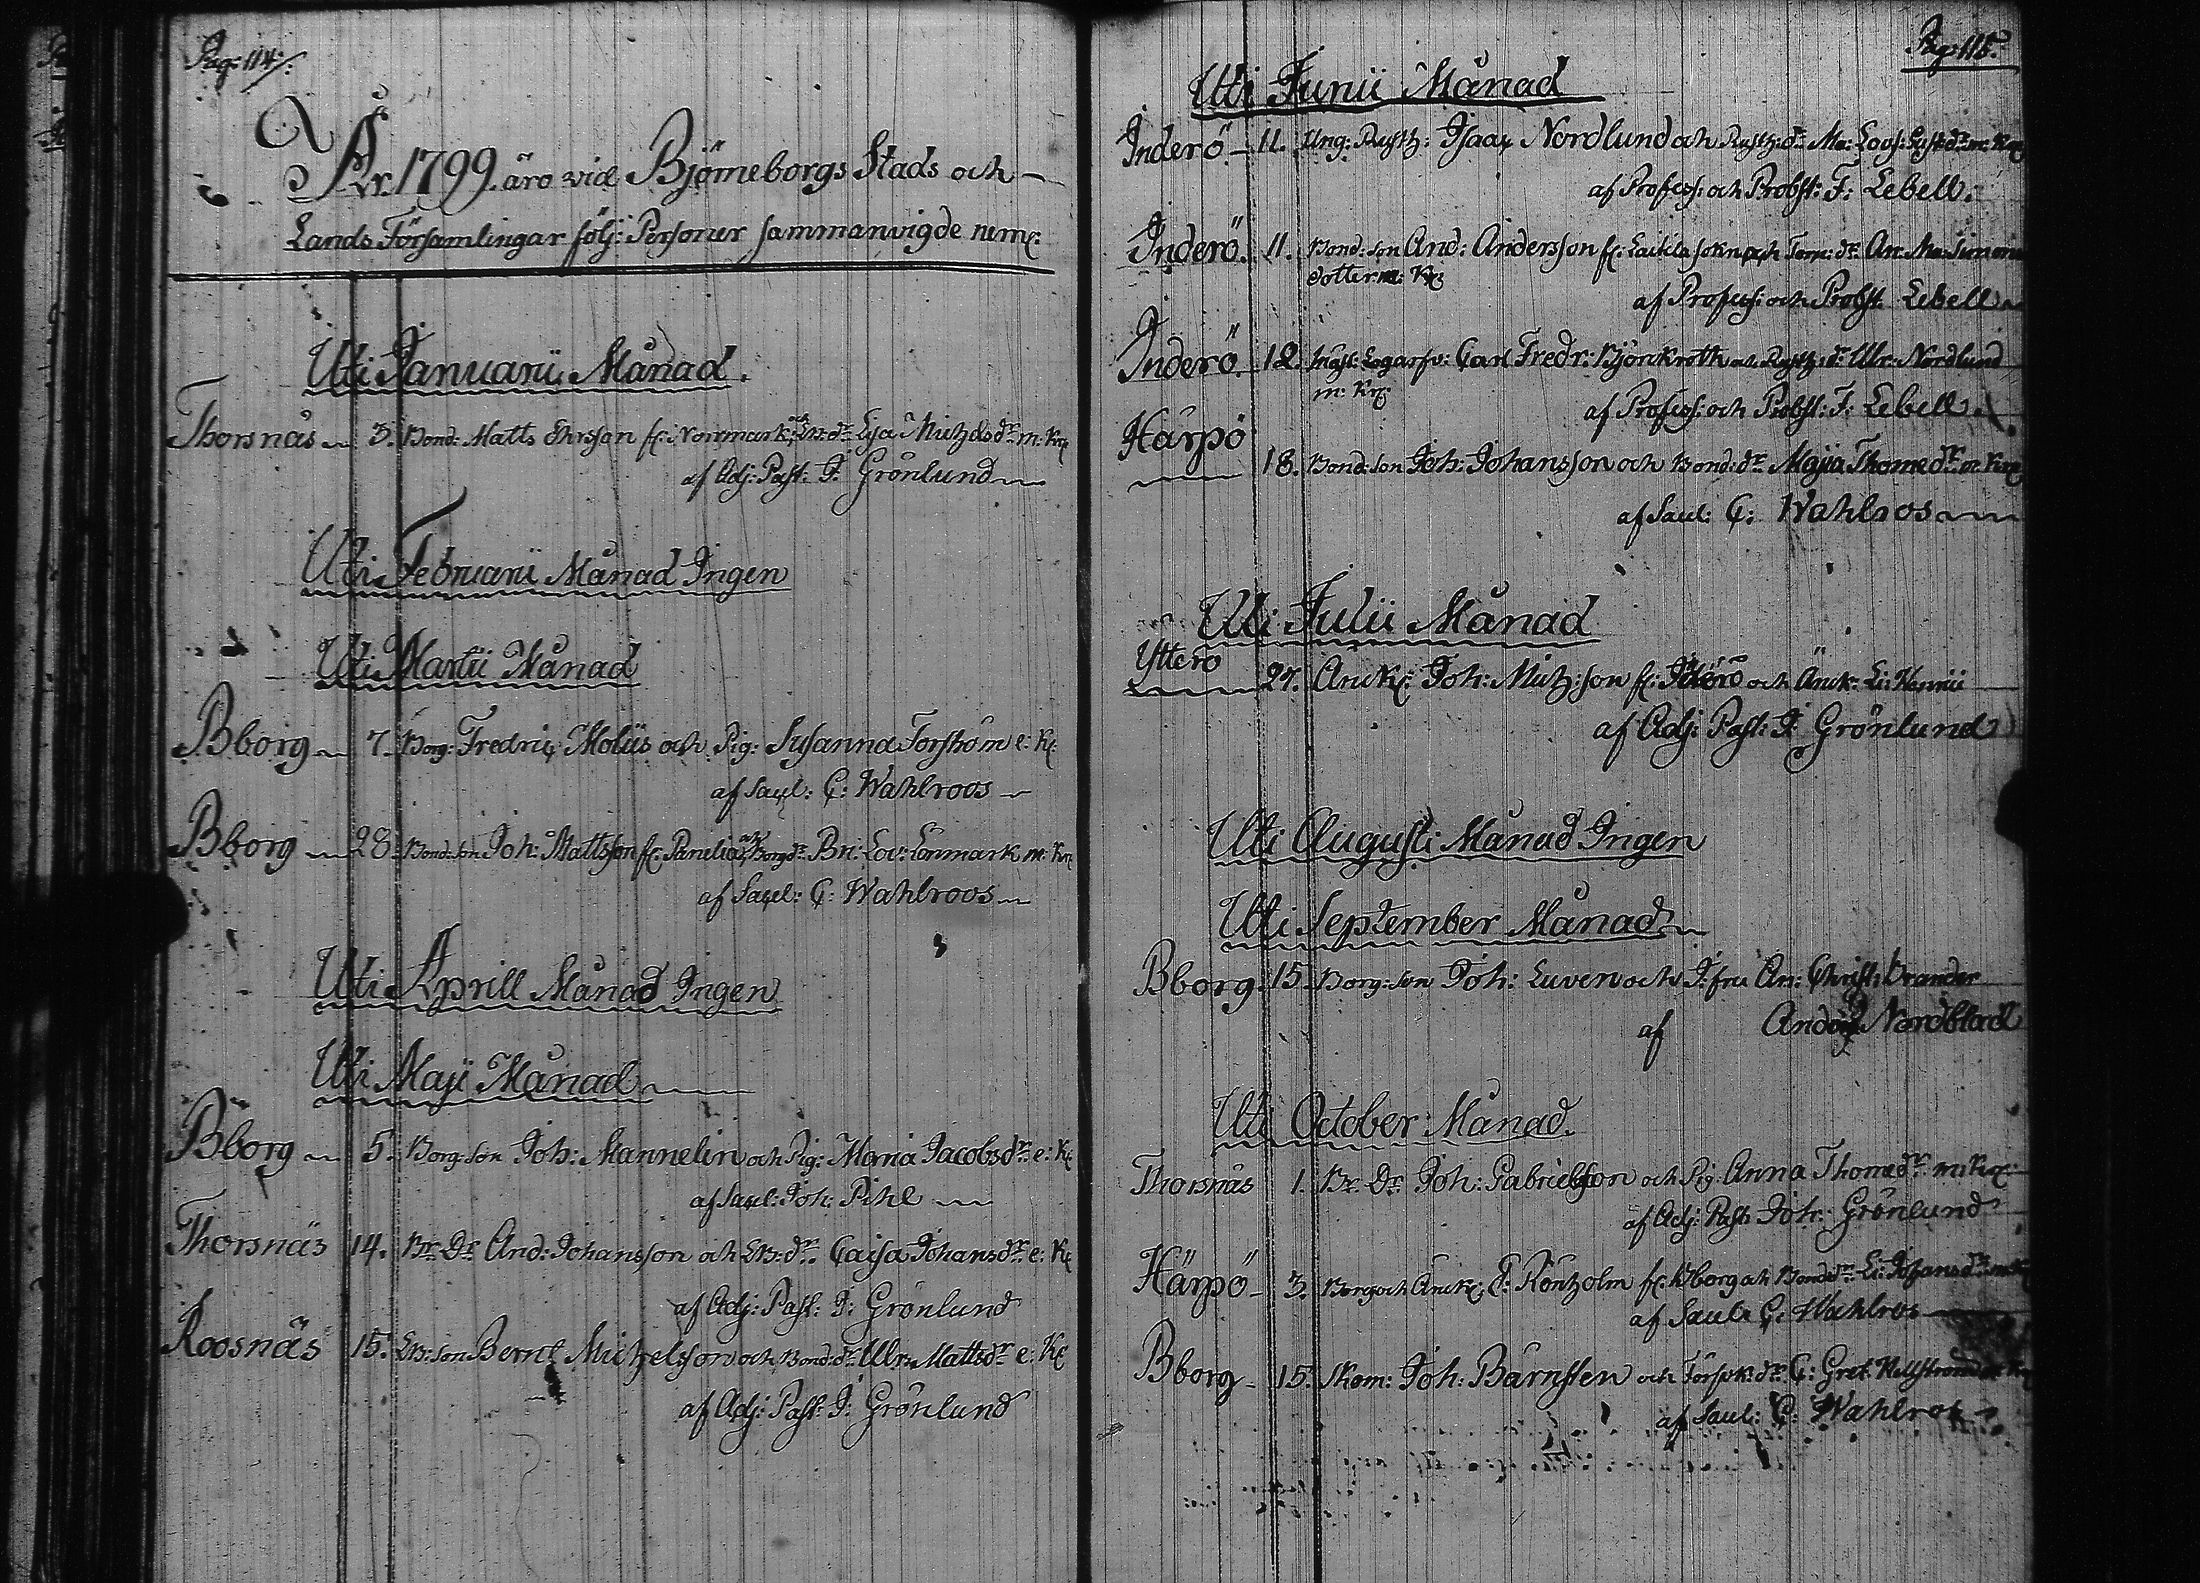 Pag: 114/:
År 1799 äro vid Björneborgs Stads och
Lands Församlingar följ: Personer sammanvigde nemE:
Uti Januarii Månad.
Thorsnäs 3. Bond: Matts Thrsson fr: Norrmark, och LB: dr Lisa Michelsdr m: Kr:
af Adj: Past: J: Grönlund
Uti Februarii Månad Ingen
Uti Martii Månad
Bborg 7. Borg: Fredric Molüs och Pig: Susanna Forsström e: Kr:
af Sacel: C: Wahlroos
Bborg 28. Bond: son Joh: Mattsson fr: Panelia och Borg dr Bri: Lov: Lönmark m: Kr:
af Sacel: C: Wahlroos
Uti Aprill Månad Ingen
Uti Maji Månad
Bborg 5. Borg: son Joh: Mannelin och Pig: Maria Jacobsdr e: Kr
af Sacel: Joh: Pihl
Thorsnäs 14. Br Dr And: Johansson och LB: dr: Cajsa Johansdr e: Kr
af Adj: Past: J: Grönlund
Roosnäs 15. LB: son Bernt Michelsson och Bond: dr Ulr: Mattsdr e: Kr
af Adj: Past: J: Grönlund
Pag: 115.
Uti Junii Månad
Inderö 11. Ung: Rusth: Isaac Nordlund och Rusth: dr Ma: Lovs: Gust: dr m: Kr:
af Profess: och Probst: F: Lebell.
Inderö. 11. Bond: son And: Andersson fr: Laihela sokn och Torp: dr An: Ma: Simons
dotter m: Kr:
af Profess: och Probst Lebell
Inderö 12. Logarfv: Carl Fredr: Björkroth och Rusth: dr Ulr: Nordlund
m: Kr:
af Profess: och Probst: F: Lebell.
Härpö 18. Bond: son Joh: Johansson och Bond: dr Maja Thomedr m: Kr:
af Sacel: C: Wahlroos
Uti Julii Månad
Ytterö 27. Enck: Joh: Mich: son fr: Ytterö och Änck: Li: Henrii
af Adj: Past: J: Grönlund
Uti Augusti Månad Ingen
Uti September Månad
Bborg 15. Borg: son Joh: Luven och J:fru An: Christ: Brander
af And: Nordblad
Uti October Månad.
Thorsnäs 1. Br Dr Joh: Gabrielsson och Pig: Anna Thomedr m: Kr:
af Adj: Past: Joh: Grönlund
Härpö 3. Borg och Enck: J: Rönholm fr: Bborg och Bonde dr Li: Johansdr m: Kr
af Sacel: C: Wahlros
Bborg 15. Skom: Joh: Bärnsten och Torpk: dr C: Gret: Hellström m: Kr
af Sacel: C: Wahlros